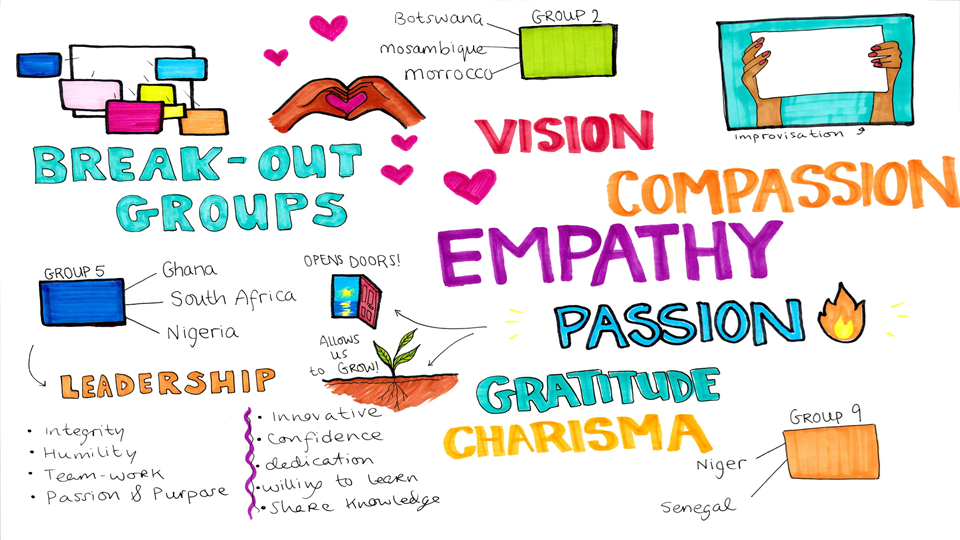 BREAK-OUT
GROUPS
Botswana
mosambique
morrocco
GROUP 2
improvisation
VISION
COMPASSION
EMPATHY
PASSION
GRATITUDE
CHARISMA
GROUP 5
Ghana
South Africa
Nigeria
OPENS DOORS!
ALLOWS
US
to GROW!
LEADERSHIP
• Integrity
• Humility
• Team-work
• Passion & Purpose
• Innovative
• Confidence
• dedication
• willing to learn
• Share Knowledge
GROUP 9
Niger
Senegal